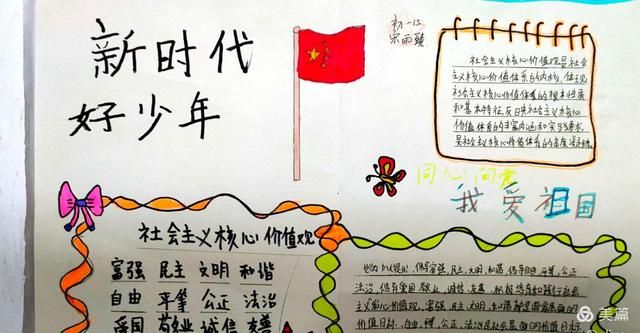 新时代
好少年
初一15
社会主义核心价值观是社会
主义核心价值体系的内核，体现
社会主义核心价值体系的根本性质
和基本特征，反映社会主义核心
价值体系的丰富内涵和实践要求，
是社会主义核心价值体系的高度凝练
同心向党
我爱祖国
社会主义核心价值观
富强 民主 文明 和谐
自由 平等 公正 法治
爱国 敬业 诚信 友善
提出，倡导富强、民主、文明、和谐，倡导自由、平等、公正
法治，倡导爱国、敬业、诚信、友善，积极培育和践行社会
主义核心价值观。富强、民主、文明、和谐是国家层面的
价值目标，自由、平等、公正、法治是社会层面的价值目标
美篇